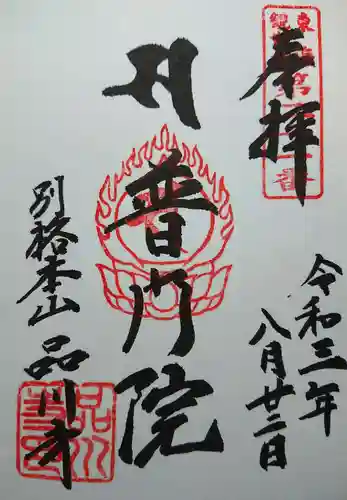 奉拝
令和三年
八月廿二日
普門院
別格本山
品川寺